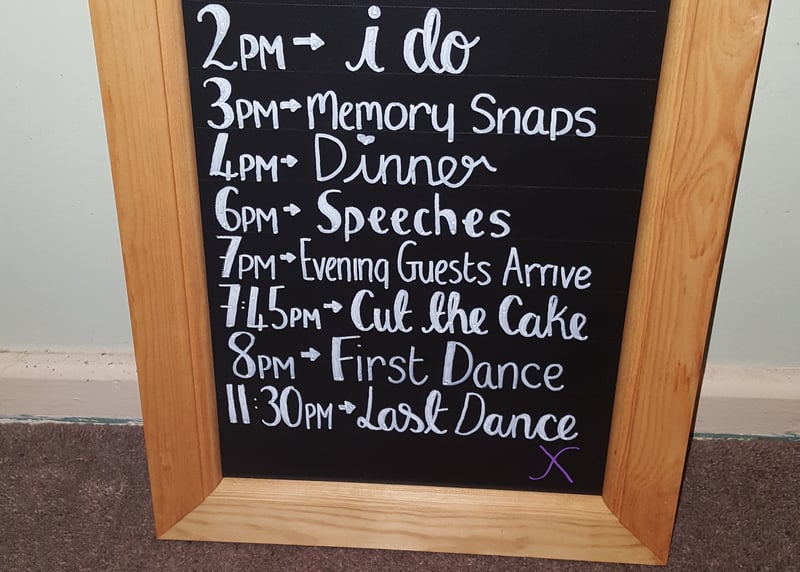 2PM → i do
3PM → Memory Snaps
4PM → Dinner
6PM → Speeches
7PM → Evening Guests Arrive
7:45PM → Cut the Cake
8PM → First Dance
11:30PM → Last Dance
X